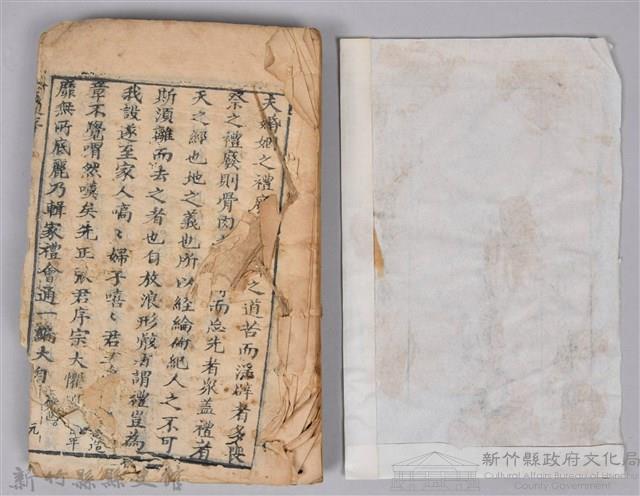 夫婚姻之禮廢 之道苦而淫辟者多喪
祭之禮廢則骨肉 而忘先者衆蓋禮者
天之經也地之義也所以經綸倫紀人之不可
斯須離而去之者也自放浪形骸者謂禮豈為
我設遂至家人嗃嗃婦子嘻嘻君
章不覺喟然嘆矣先正 君序宗大懼
靡無所底麗乃輯家禮會通一編大自
元
新竹縣縣史館
新竹縣政府文化局
Cultural Affairs Bureau of Hsinchu
County Government